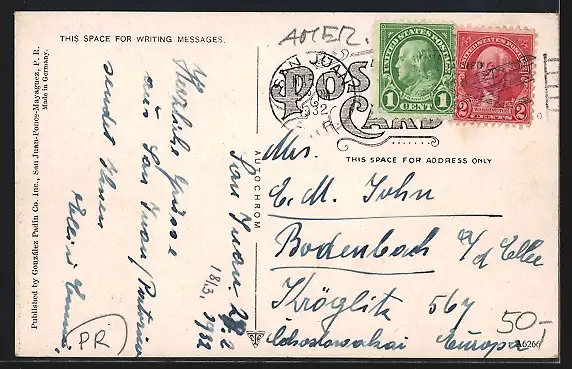 THIS SPACE FOR WRITING MESSAGES.
AMER.
SAN JUAN
1932
P.R.
POST CARD
UNITED STATES POSTAGE
1 CENT 1
UNITED STATES POSTAGE
WASHINGTON
2 CENTS 2
THIS SPACE FOR ADDRESS ONLY
Published by González Padín Co. Inc., San Juan-Ponce-Mayaguez, P. R.
Made in Germany.
AUTOCHROM
Herzliche Grüsse
aus San Juan/Portorico
sendet Ihnen
San Juan 2
18/3. 1932
PR
Mrs.
E. M. John
Bodenbach a/d Elbe
Kröglitz 567
Čchoslowakai Europa
50-
A6266